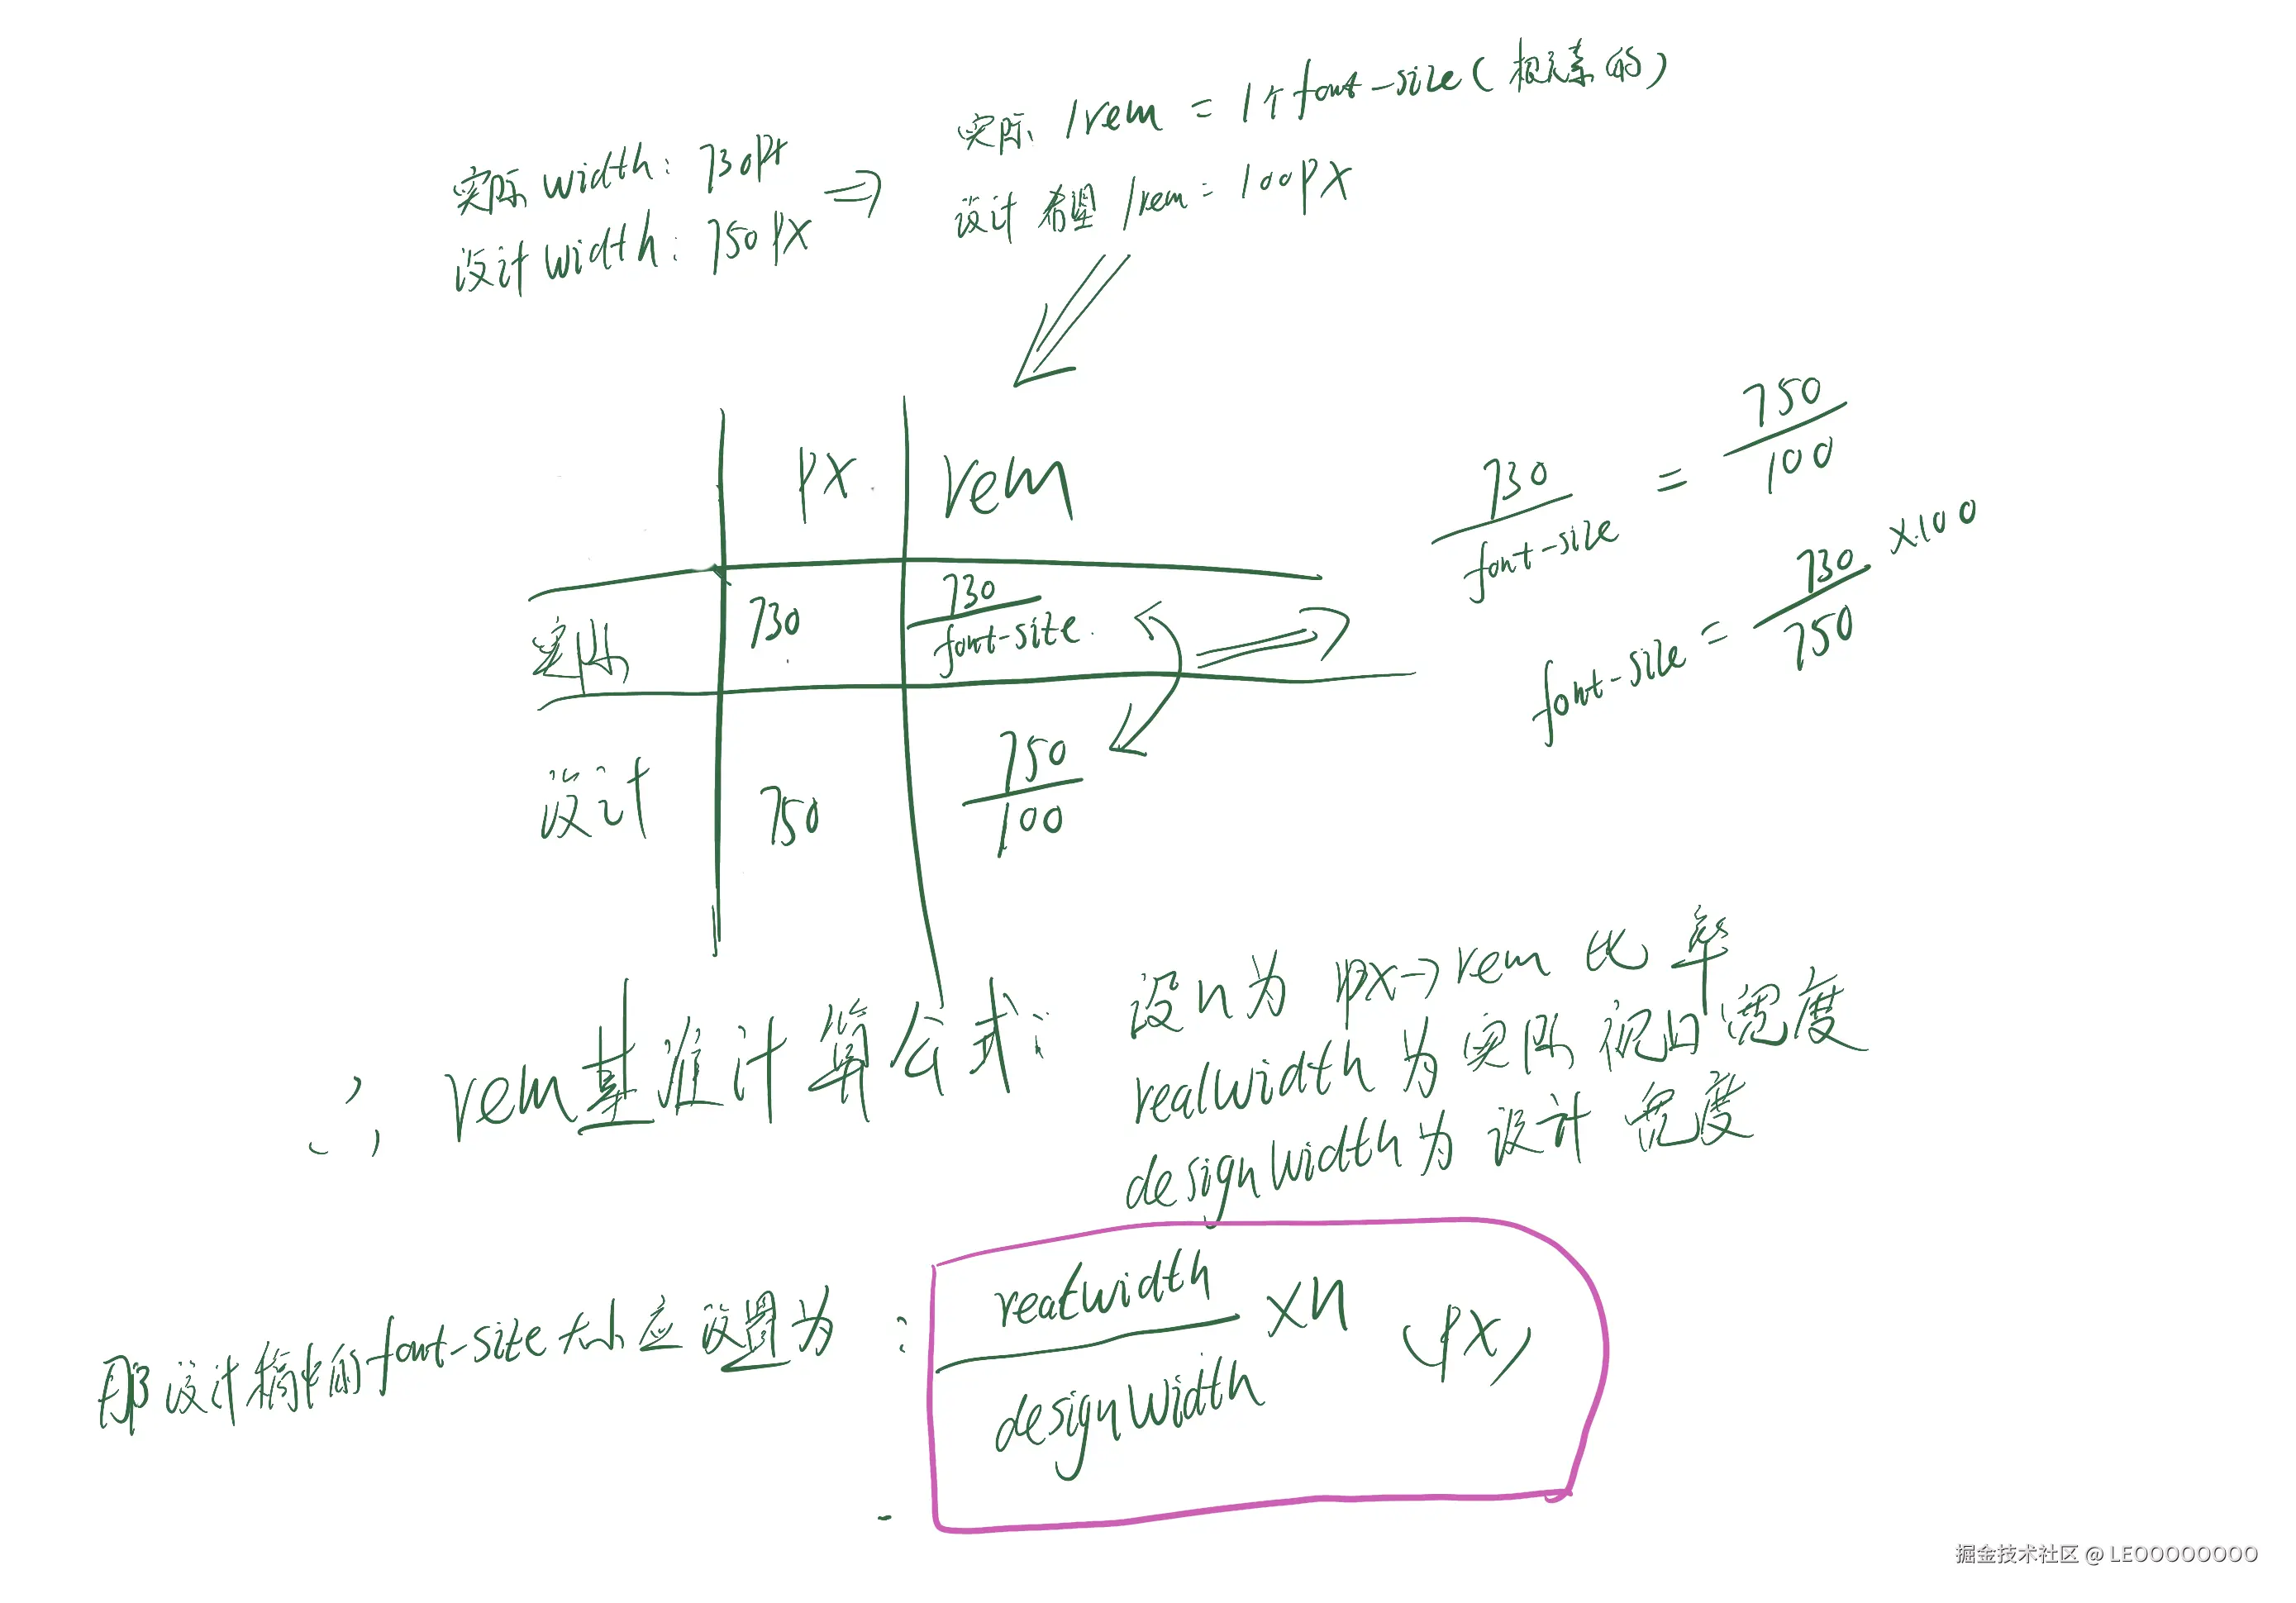 实际 1rem = 1个font-size(根元素的)
设计 希望 1rem = 100px
实际 width: 730px
设计 width: 750px
px rem
实际 730 730/font-size
设计 750 750/100
730/font-size = 750/100
font-size = 730/750 × 100
∴ rem基准计算公式:
设n为 px→rem 比率
realwidth为实际视口宽度
designwidth为设计宽度
那设计稿中的font-size大小应设置为:
realwidth/designwidth × n (px)
掘金技术社区 @ LEOOOOOOOO